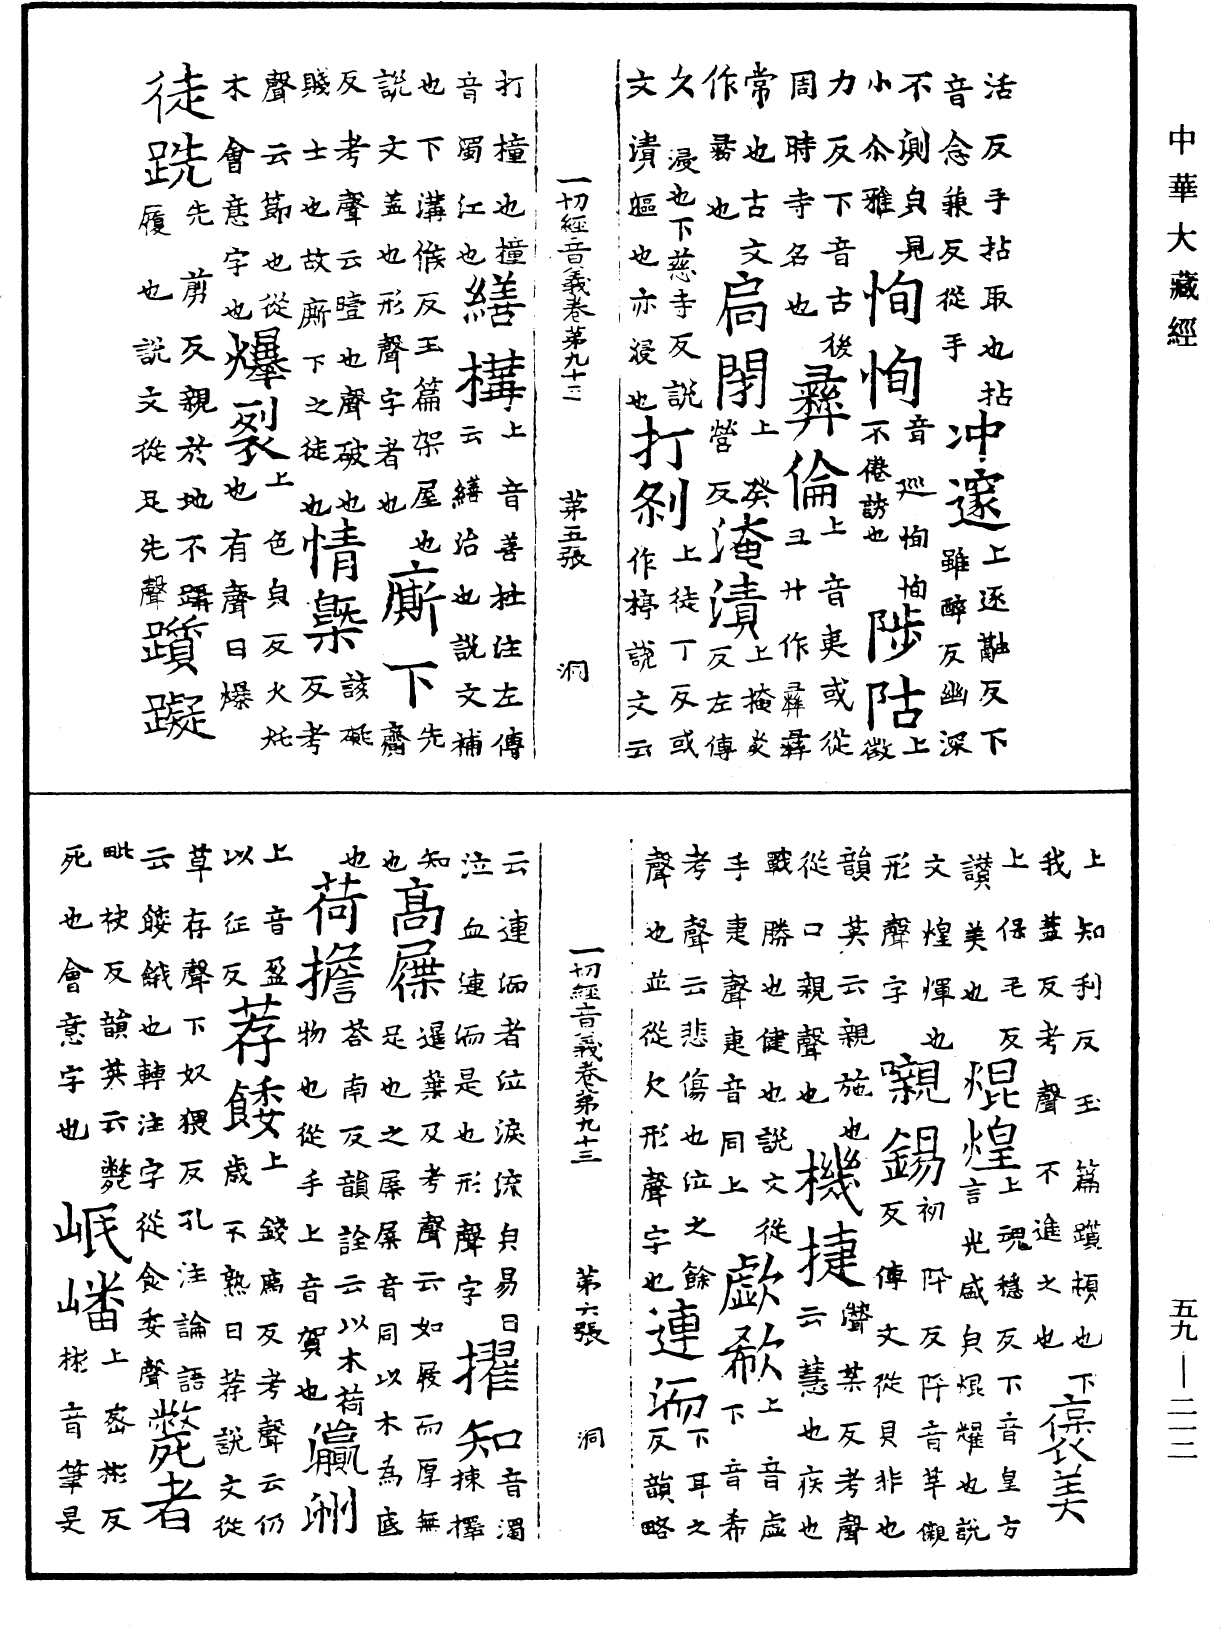 中華大藏經
活反手拈取也拈
音念兼反從手
冲邃
上逐融反下
雖醉反幽深
不測貞見
小尒雅
恂恂
音巡恂恂
不倦謗也
陟岵
上
徵
力反下音古後
周時寺名也
彞倫
上音夷或從
彑廾作彛彞
常也古文
作㝱也
扃閉
上癸
營反
淹漬
上掩炎
反左傳
久浸也下慈寺反說
文漬漚也亦浸也
打刹
上徒丁反或
作揨說文云
一切經音義卷第九十三 第五張 洞
打撞也撞
音濁江也
繕構
上音善杜注左傳
云繕治也說文補
也下溝候反玉篇架屋也
說文蓋也形聲字者也
廝下
先
齎
反考聲云曀也聲破也
賤士也故廝下之徒也
情槩
該碍
反考
聲云節也從
木會意字也
爆裂
上色貞反火烑
也有聲曰爆
徒跣
先剪反親於地不躡
履也說文從足先聲
躓礙
上知利反玉篇躓頓也下
我蓋反考聲不進之也
襃美
上保毛反
讃美也
焜煌
上魂穩反下音皇方
言光盛貞焜耀也說
文煌煇也
形聲字
嚫錫
初陣反陣音莘儭
反傳文從貝非也
韻英云親施也
從口親聲也
機捷
葉反考聲
云慧也疾也
戰勝也健也說文從
手疌聲疌音同上
歔欷
上音虛
下音希
考聲云悲傷也泣之餘
聲也並從欠形聲字也
連洏
下耳之
反韻略
一切經音義卷第九十三 第六張 洞
云連洏者泣淚流貞易曰
泣血連洏是也形聲字
擢知
音濁
揀擇
知
也
高屧
暹葉反考聲云如屐而厚無
足也之屟屟音同以木為底
也
荷擔
荅南反韻詮云以木荷
物也從手上音賀也
瀛洲
上音盈
以征反
荐餧
上錢薦反考聲云仍
歲不熟曰荐說文從
草存聲下奴猥反孔注論語
云餧餓也轉注字從食委聲
斃者
毗袂反韻英云斃
死也會意字也
岷嶓
上密彬反
彬音筆旻
五九—二一二